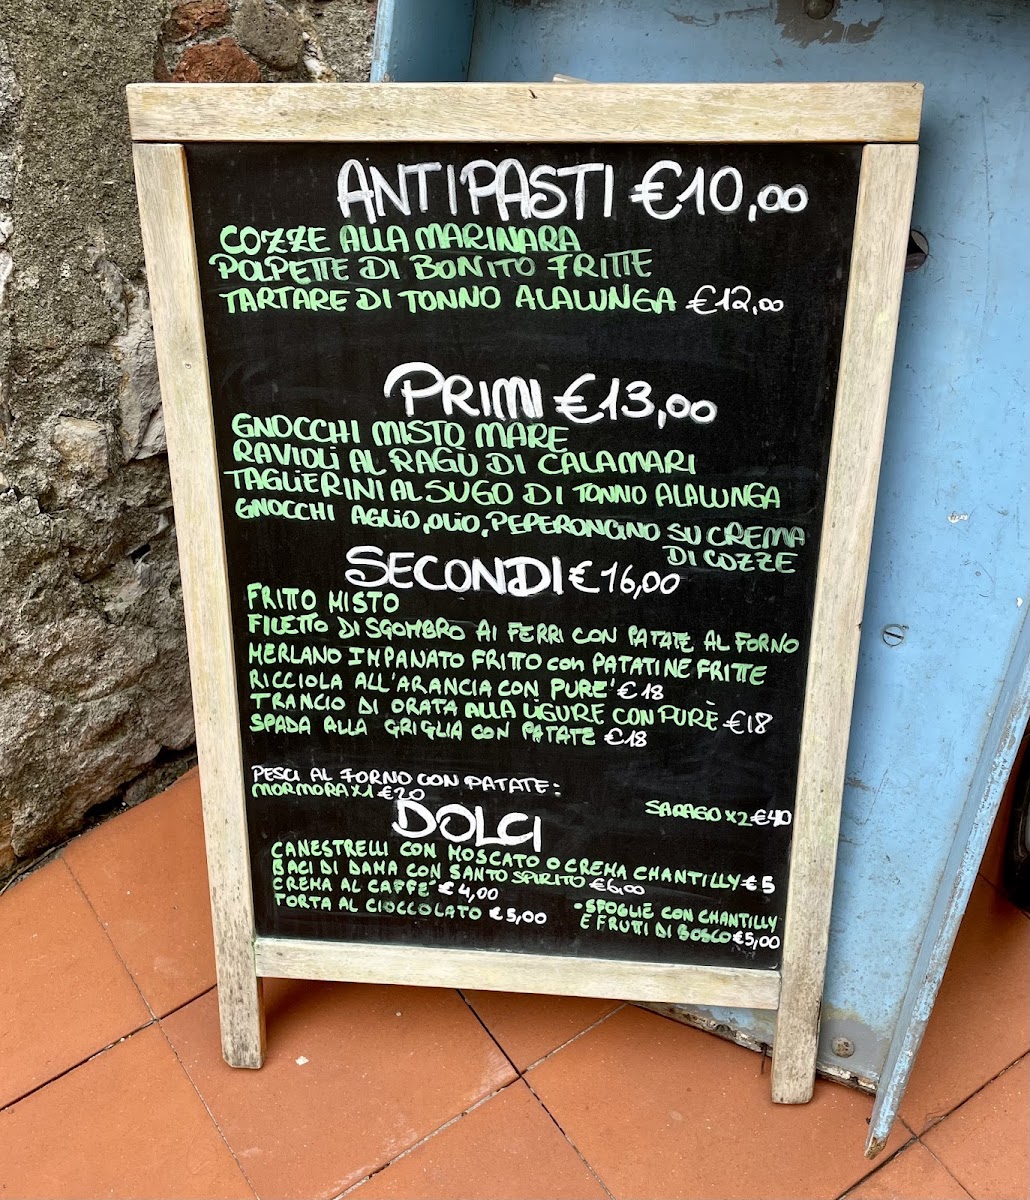 ANTIPASTI €10,00
COZZE ALLA MARINARA
POLPETTE DI BONITO FRITTE
TARTARE DI TONNO ALALUNGA €12,00
PRIMI €13,00
GNOCCHI MISTO MARE
RAVIOLI AL RAGÙ DI CALAMARI
TAGLIERINI AL SUGO DI TONNO ALALUNGA
GNOCCHI AGLIO, OLIO, PEPERONCINO SU CREMA
DI COZZE
SECONDI €16,00
FRITTO MISTO
FILETTO DI SGOMBRO AI FERRI CON PATATE AL FORNO
MERLANO IMPANATO FRITTO con PATATINE FRITTE
RICCIOLA ALL'ARANCIA CON PURE' €18
TRANCIO DI ORATA ALLA LIGURE CON PURÈ €18
SPADA ALLA GRIGLIA CON PATATE €18
PESCI AL FORNO CON PATATE:
MORMORA X1 €20
SARAGO X2 €40
DOLCI
CANESTRELLI CON MOSCATO O CREMA CHANTILLY €5
BACI DI DAMA CON SANTO SPIRITO €6,00
CREMA AL CAFFE' €4,00
TORTA AL CIOCCOLATO €5,00
• SFOGLIE CON CHANTILLY
E FRUTI DI BOSCO €5,00